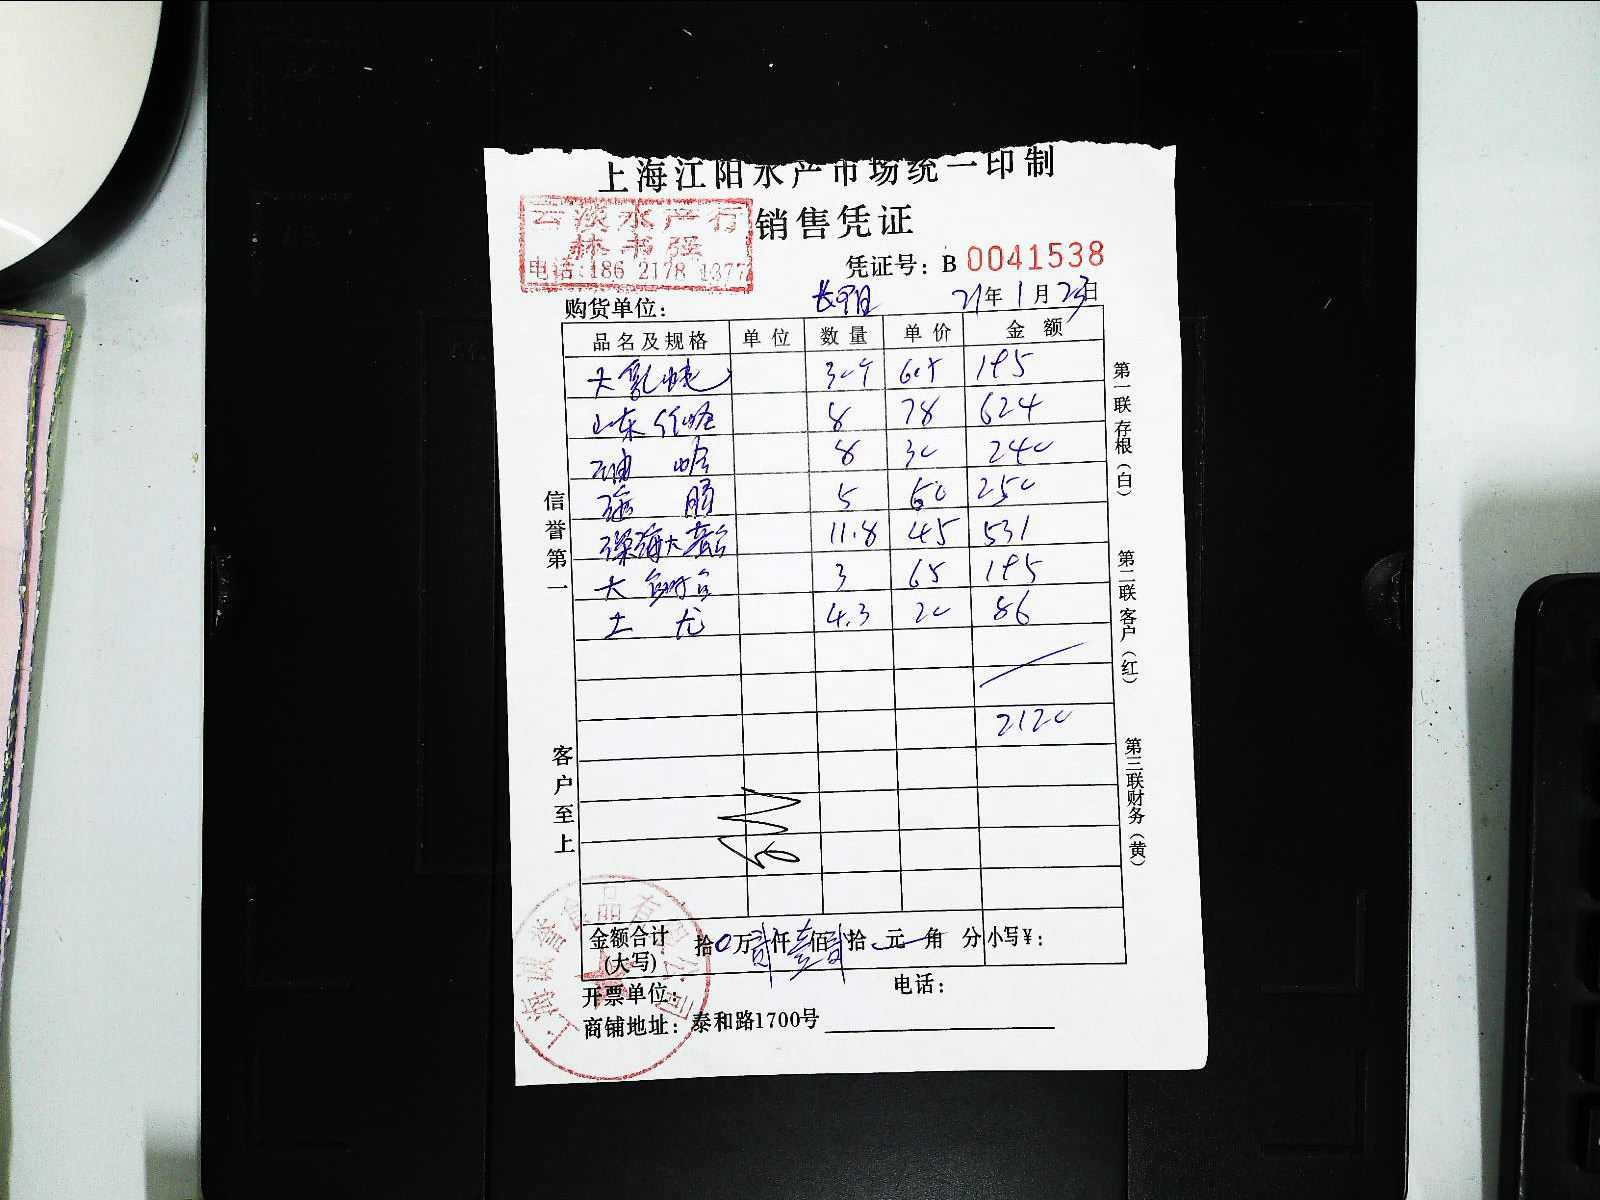 上海江阳水产市场统一印制
云淡水产行
林书强
电话:186 2178 1377
销售凭证
凭证号：B 0041538
购货单位：
21年1月23日
品名及规格 单位 数量 单价 金额
大 30个 6.5 195
山东 8 78 624
油 哈 8 30 240
5 50 250
深海大 11.8 45 531
大 3 65 195
土 龙 4.3 20 86
2120
金额合计(大写) 拾0万贰仟壹佰贰拾 元 角 分 小写¥：
开票单位： 电话：
商铺地址：泰和路1700号
信誉第一
客户至上
第一联存根（白）
第二联客户（红）
第三联财务（黄）
上海诚誉食品有限公司